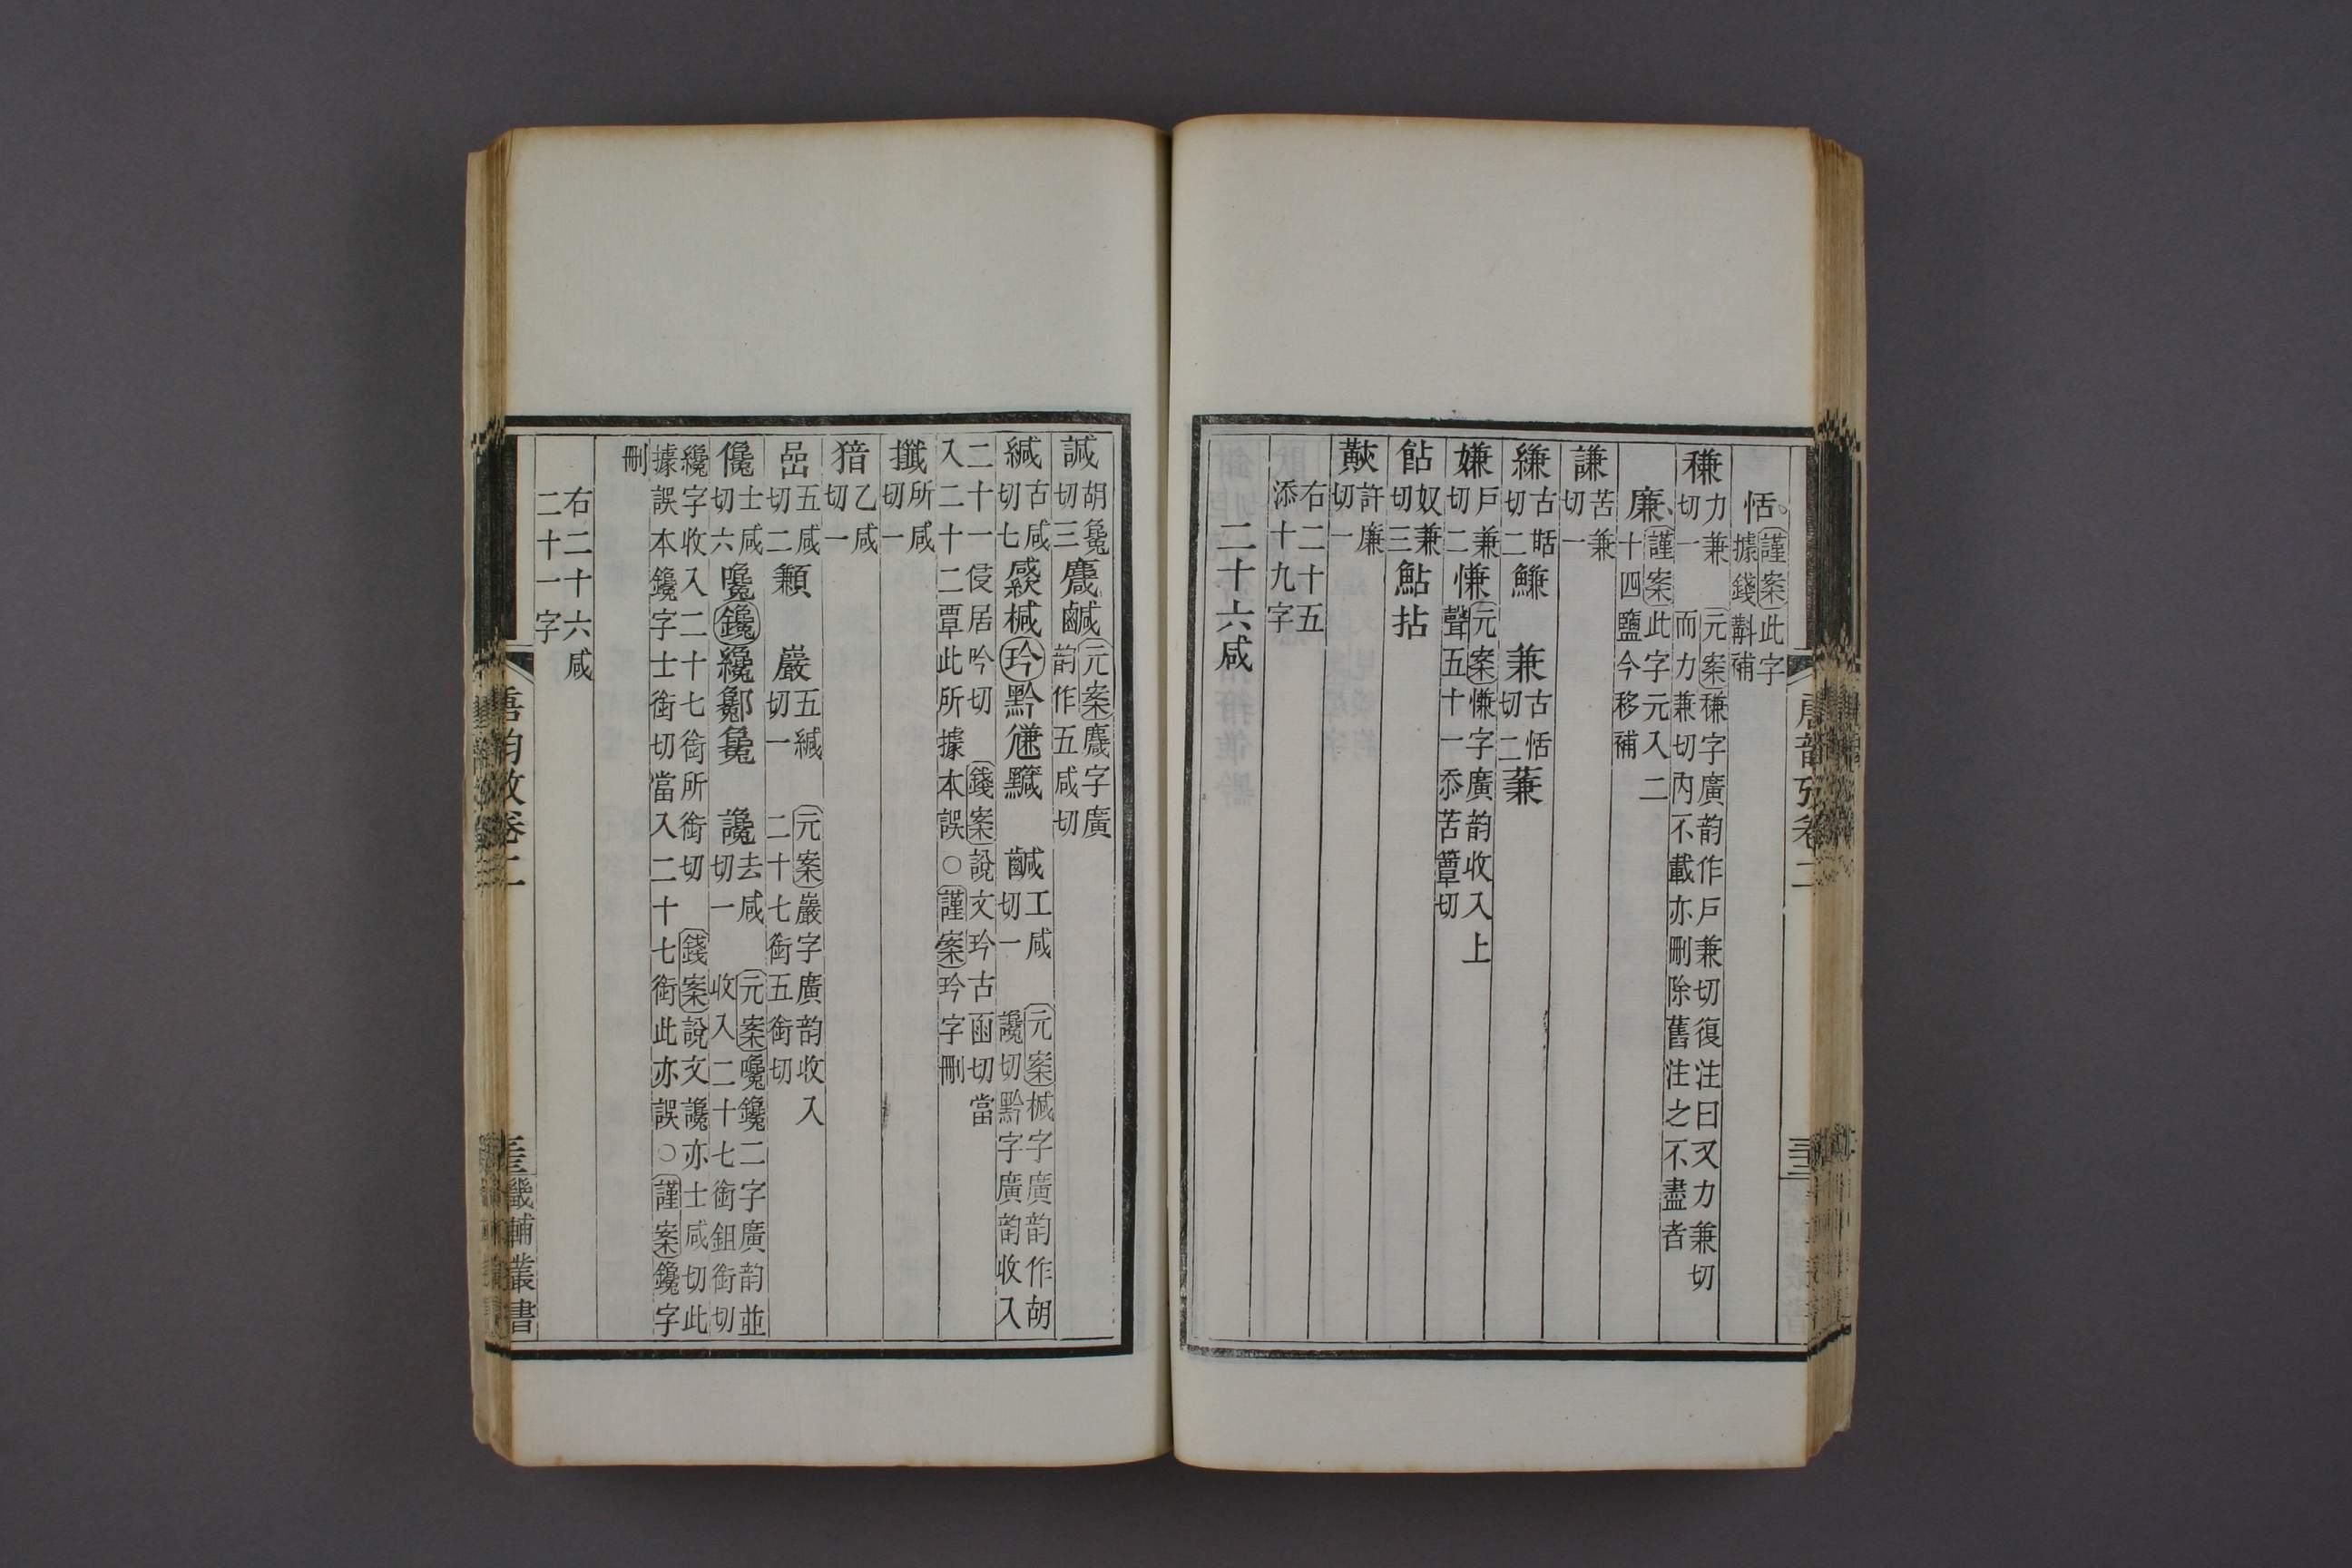 恬。謹案此字據錢斠補
稴力兼切一元案稴字廣韵作戶兼切復注曰又力兼切而力兼切內不載亦刪除舊注之不盡者
廉、謹案此字元入二十四鹽今移補
謙苦兼切一
縑古甛切二鰜 兼古恬切二蒹
嫌戶兼切二慊元案慊字廣韵收入上聲五十一忝苦簟切
䬯奴兼切三鮎拈
䵌許廉切一
右二十五添十九字
二十六咸
諴胡毚切三麙鹹元案麙字廣韵作五咸切
緘古咸切七㰹椷玪黔尲黬 鹹工咸切一 元案椷字廣韵作胡讒切黔字廣韵收入
二十一侵居吟切 錢案說文玪古函切當入二十二覃此所據本誤○謹案玪字刪
攕所咸切一
猎乙咸切一
嵒五咸切二顤 巖五緘切一 元案巖字廣韵收入二十七銜五銜切
儳士咸切六嚵鑱纔酁毚 讒去咸切一 元案嚵鑱二字廣韵並收入二十七銜鉏銜切
纔字收入二十七銜所銜切 錢案說文讒亦士咸切此據誤本鑱字士銜切當入二十七銜此亦誤○謹案鑱字
刪
右二十六咸二十一字
唐韵攷卷二
畿輔叢書